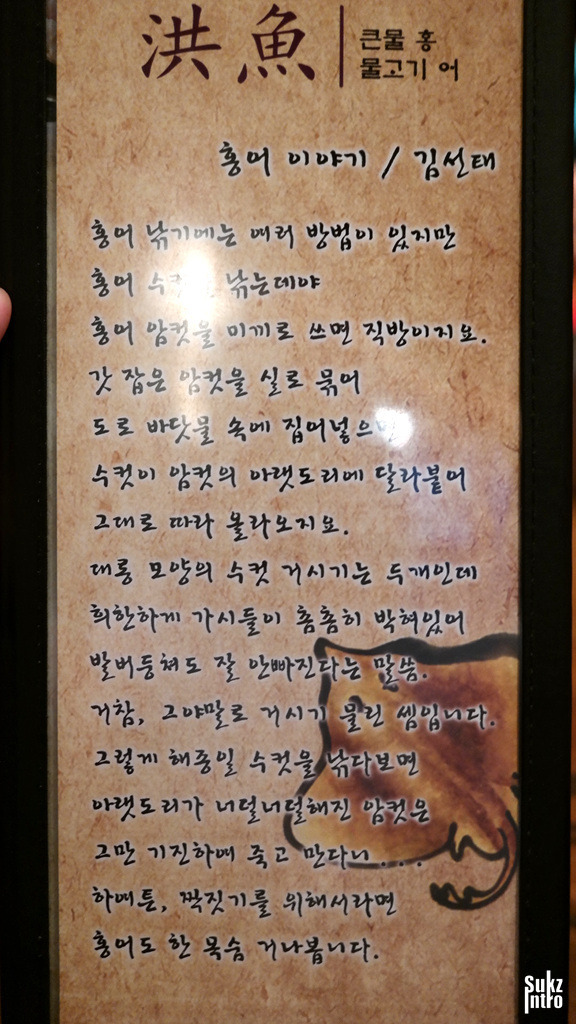 洪魚
큰물 홍
물고기 어
홍어 이야기 / 김선태
홍어 낚기에는 여러 방법이 있지만
홍어 낚는데야
홍어 암컷을 미끼로 쓰면 직방이지요.
갓 잡은 암컷을 실로 묶어
도로 바닷물 속에 집어넣으면
수컷이 암컷의 아랫도리에 달라붙어
그대로 따라 올라오지요.
대롱 모양의 수컷 거시기는 두개인데
희한하게 가시들이 촘촘히 박혀있어
발버둥쳐도 잘 안빠진다는 말씀.
거참, 그야말로 거시기 물린 셈입니다.
그렇게 해종일 수컷을 낚다보면
아랫도리가 너덜너덜해진 암컷은
그만 기진하여 죽고 만다니....
하여튼, 짝짓기를 위해서라면
홍어도 한 목숨 거나봅니다.
Sukz
Intro